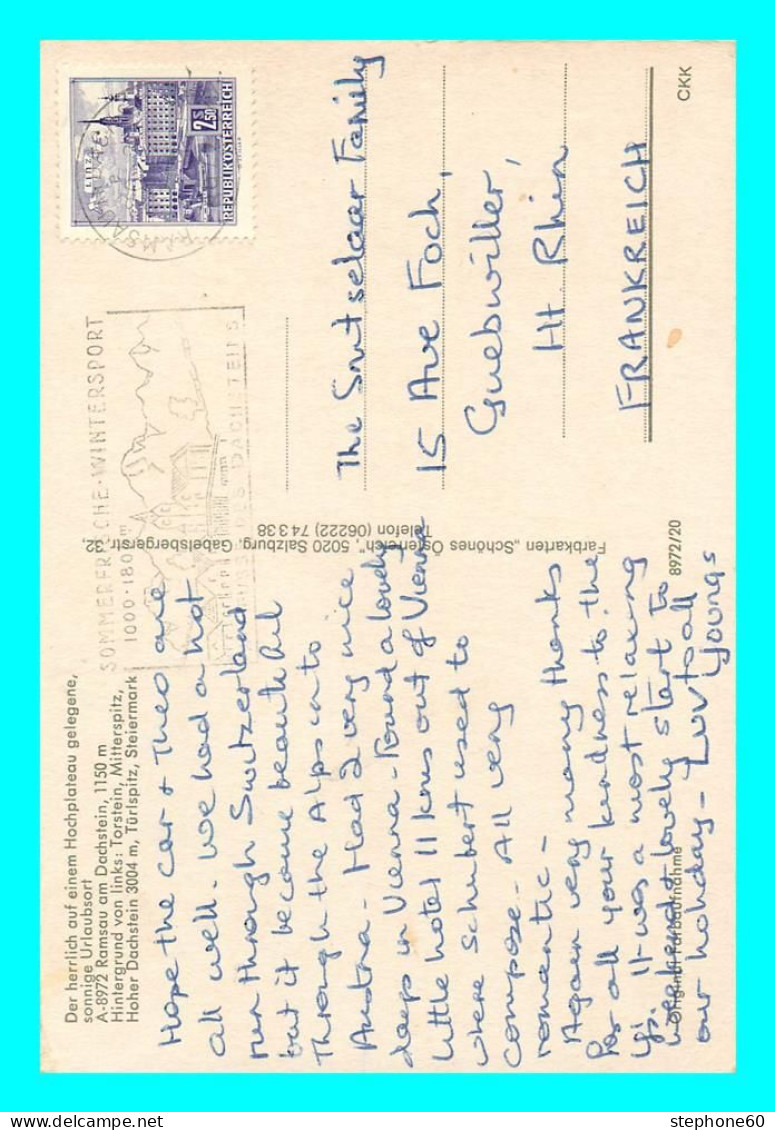 Der herrlich auf einem Hochplateau gelegene,
sonnige Urlaubsort
A-8972 Ramsau am Dachstein, 1150 m
Hintergrund von links: Torstein, Mitterspitz,
Hoher Dachstein 3004 m, Türlspitz, Steiermark
Hope the car & Theo are
all well. We had a hot
run through Switzerland
but it become beautiful
through the Alps into
Austria. Had 2 very nice
days in Vienna - Found a lovely
little hotel 11 kms out of Vienna
where Schubert used to
compose. All very
romantic -
Again very many thanks
for all your kindness to the
Ys. It was a most relaxing
weekend & lovely start to
our holiday - Luv to all
Youngs
Original Farbaufnahme
8972/20
Farbkarten „Schönes Österreich", 5020 Salzburg, Gabelsbergerstr. 32,
Telefon (06222) 74 3 38
SOMMERFRISCHE-WINTERSPORT
1000-1800 m
DES DACHSTEINS
RAMSAU
LINZ
2.50 S
REPUBLIK ÖSTERREICH
The Smutselaer Family
15 Ave Foch,
Guebwiller,
Ht Rhin
FRANKREICH
CKK
stephone60